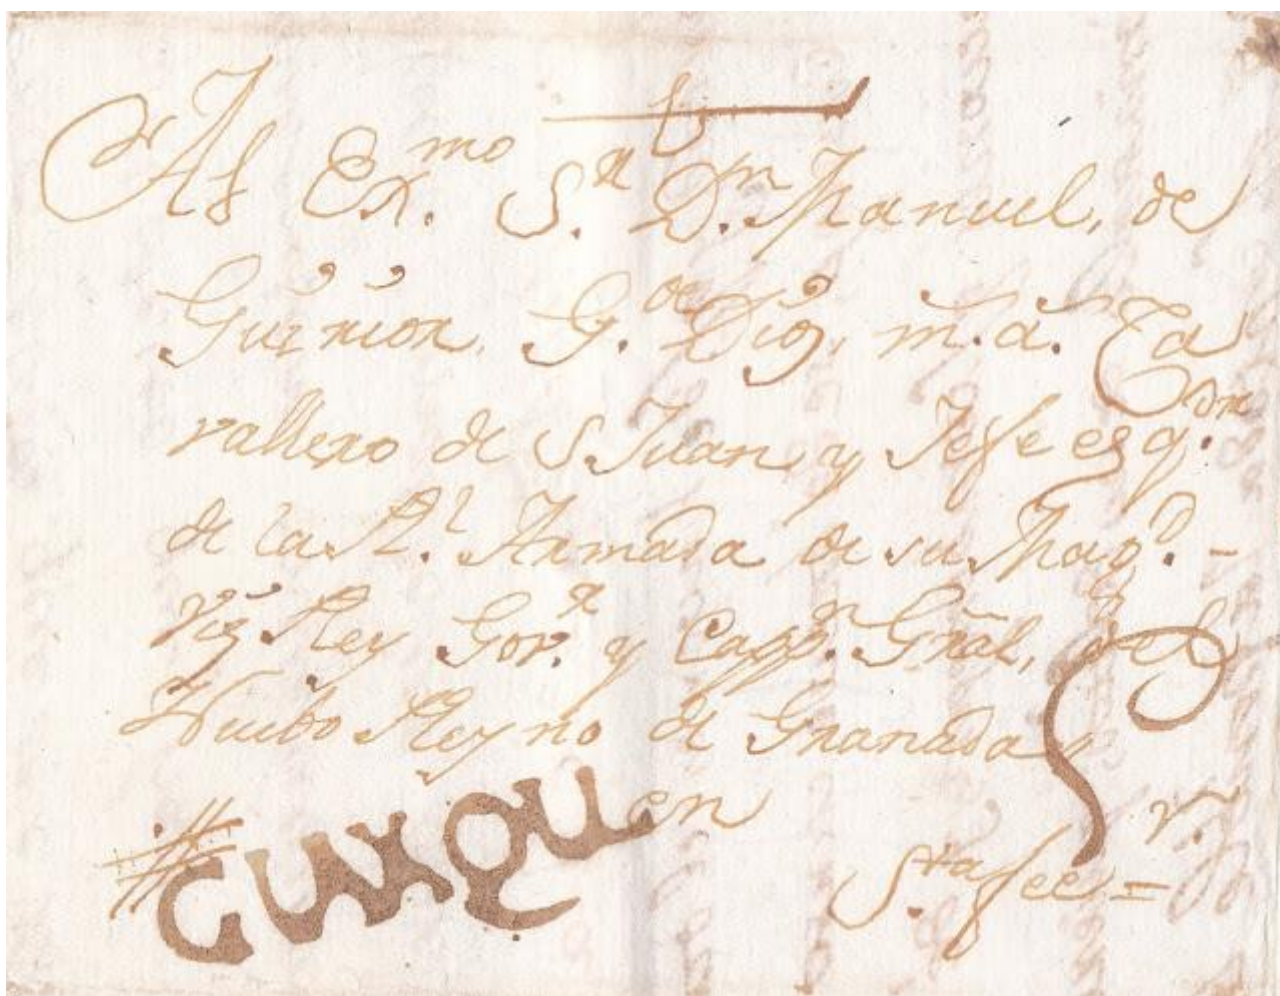 Al Ex.mo S.r D.n Manuel, de
Guirrior, G.de Dios, m.s a.s Ca
vallero de S. Juan y Jefe esq.dra
de la R.l Armada de su Mag.d -
Viz Rey Gov.r y Capp.n Gñal, del
Nuebo Reyno de Granada
en
r.
S.tafee =
GUAYQU